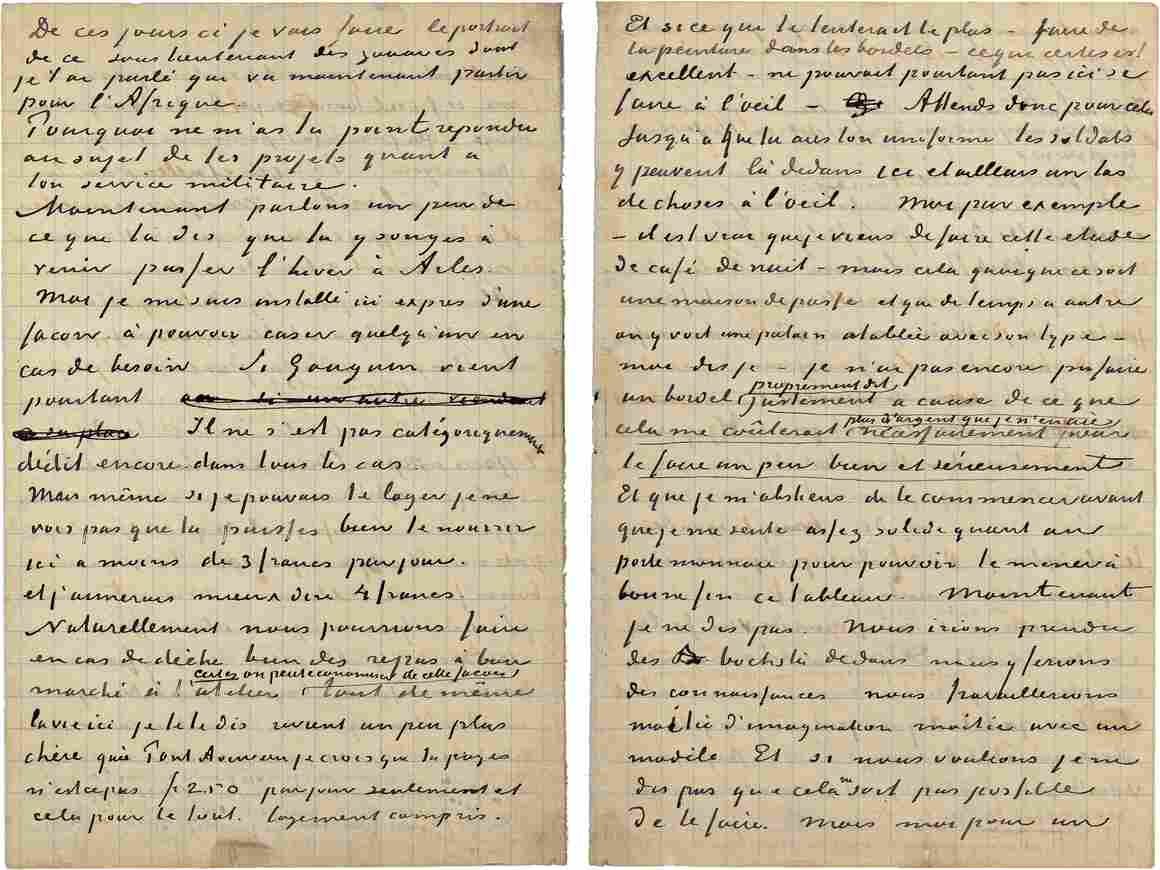 De ces jours ci je vais faire le portrait
de ce sous lieutenant des zouaves dont
je t'ai parlé qui va maintenant partir
pour l'Afrique.
Pourquoi ne m'as tu point repondu
au sujet de tes projets quant a
ton service militaire.
Maintenant parlons un peu de
ce que tu dis que tu y songes à
venir passer l'hiver à Arles.
Moi je me suis installé ici expres d'une
facon à pouvoir caser quelqu'un en
cas de besoin Si Gauguin vient
pourtant ou si un autre viendrait
à sa place Il ne s'est pas catégoriquement
dédit encore dans tous les cas.
Mais même si je pouvais te loger je ne
vois pas que tu puisses bien te nourrir
ici a moins de 3 francs par jour.
et j'aimerais mieux dire 4 francs.
Naturellement nous pourrions faire
en cas de dèche bien des repas à bon
certes on peut economiser de cette facon
marché à l'atelier tout de même
la vie ici je te le dis revient un peu plus
chère qu'à Pont Aven je crois que tu payes
n'est ce pas fr 2.50 par jour seulement et
cela pour le tout. logement compris.
Et si ce que te tenterait le plus – faire de
la peinture dans les bordels – ce que certes est
excellent – ne pouvait pourtant pas ici se
faire à l'oeil – Attends donc pour cela
Jusqu'à que tu aies ton uniforme les soldats
y peuvent là dedans ici et ailleurs un tas
de choses à l'oeil. Moi par exemple
– il est vrai que je viens de faire cette etude
de café de nuit – mais cela quoique ce soit
une maison de passe et que de temps a autre
on y voit une putain attablée avec son type –
moi dis je – je n'ai pas encore pu faire
proprement dit
un bordel justement a cause de ce que
plus d'argent que je n'en aie
cela me coûterait necessairement pour
le faire un peu bien et sérieusement
Et que je m'abstiens de le commencer avant
que je me sente assez solide quant au
porte monnaie pour pouvoir le mener à
bonne fin ce tableau. Maintenant
je ne dis pas. Nous irions prendre
des bocks là dedans nous y ferions
des connaissances nous travaillerions
moitié d'imagination moitié avec un
modèle Et si nous voulions je ne
dis pas que cela ne soit pas possible
de le faire. Mais moi pour un